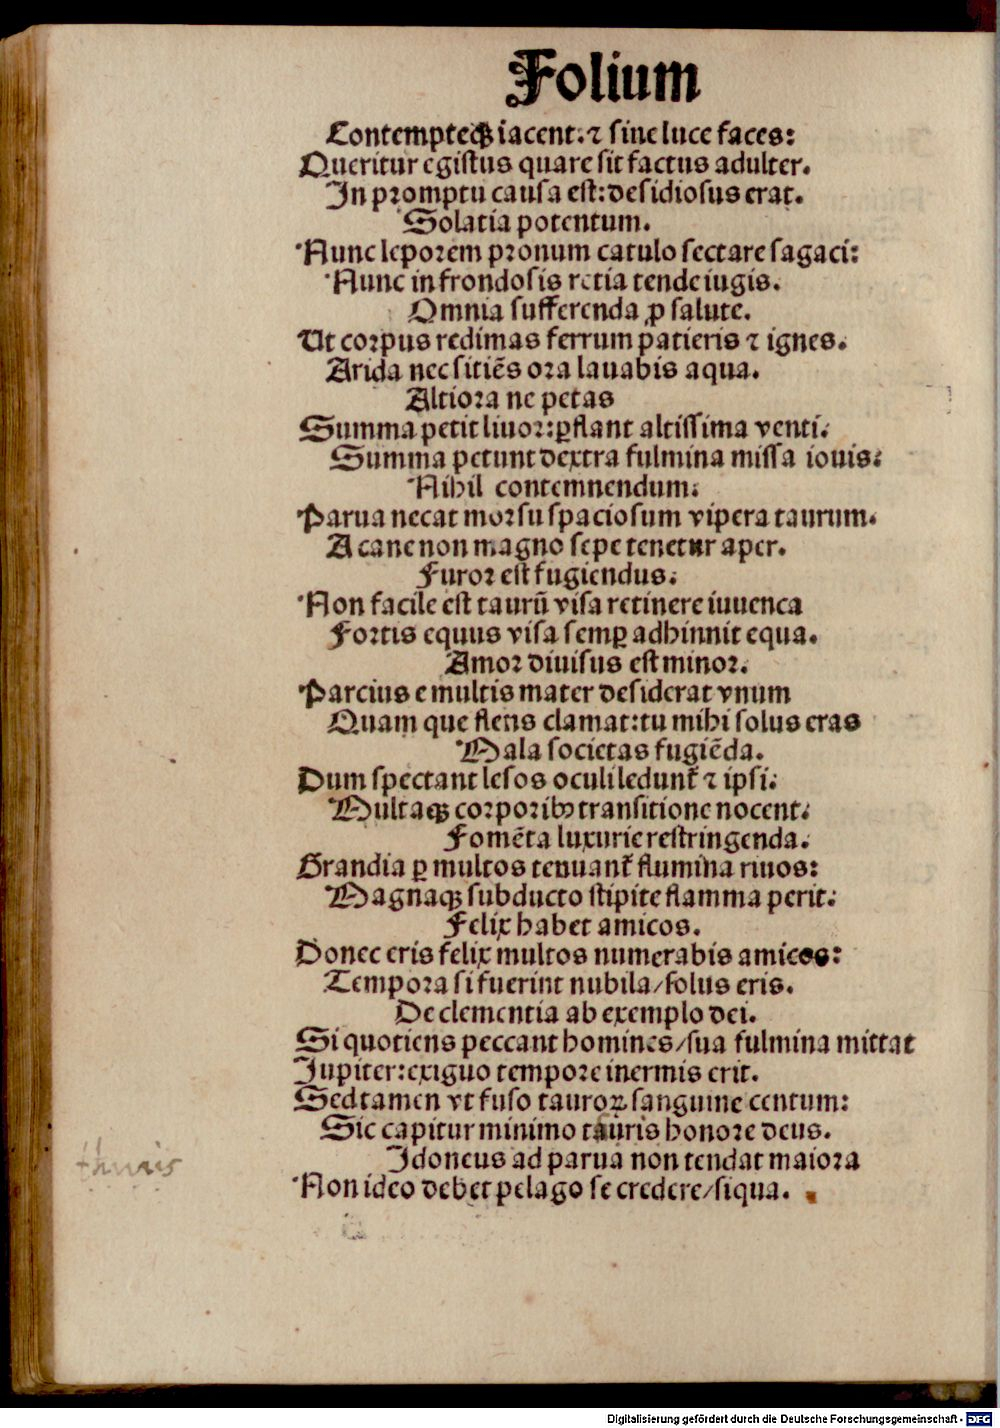 Folium
Contempteqꝫ iacent. ⁊ sine luce faces:
Queritur egistus quare sit factus adulter.
In promptu causa est: desidiosus erat.
Solatia potentum.
Nunc leporem pronum catulo sectare sagaci:
Nunc in frondosis retia tende iugis.
Omnia sufferenda ꝓ salute.
Ut corpus redimas ferrum patieris ⁊ ignes.
Arida nec sitiēs ora lauabis aqua.
Altiora ne petas
Summa petit liuor: ꝑflant altissima venti:
Summa petunt dextra fulmina missa iouis:
Nihil contemnendum:
Parua necat morsu spaciosum vipera taurum.
A cane non magno sepe tenetur aper.
Furor est fugiendus:
Non facile est taurū visa retinere iuuenca
Fortis equus visa semꝑ adhinnit equa.
Amor diuisus est minor.
Parcius e multis mater desiderat vnum
Quam que flens clamat: tu mihi solus eras
Mala societas fugiēda.
Dum spectant lesos oculi leduntᷣ ⁊ ipsi:
Multaqꝫ corporibꝰ transitione nocent:
Fomēta luxurie restringenda.
Grandia ꝑ multos tenuantᷣ flumina riuos:
Magnaqꝫ subducto stipite flamma perit:
Felix habet amicos.
Donec eris felix multos numerabis amicos:
Tempora si fuerint nubila/solus eris.
De clementia ab exemplo dei.
Si quotiens peccant homines/sua fulmina mittat
Jupiter: exiguo tempore inermis erit.
Sed tamen vt fuso tauroꝝ sanguine centum:
Sic capitur minimo tauris honore deus.
Idoneus ad parua non tendat maiora
thuris
Non ideo debet pelago se credere/siqua.
Digitalisierung gefördert durch die Deutsche Forschungsgemeinschaft - DFG